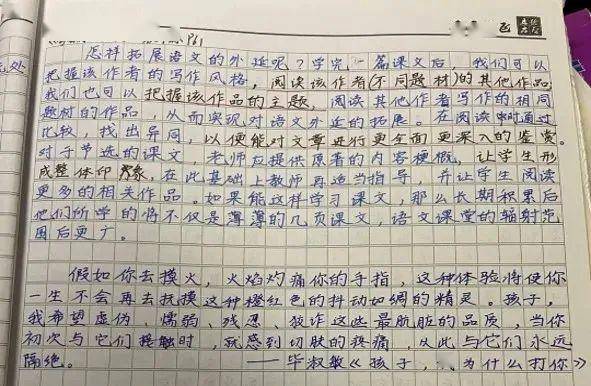 飞
无处
怎样拓展语文的外延呢？学完一篇课文后，我们可以
把握该作者的写作风格，阅读该作者(不同题材)的其他作品，
我们也可以把握该作品的主题，阅读其他作者写作的相同
题材的作品，从而实现对语文外延的拓展。在阅读中时通过
比较，找出异同，以便能对文章进行更全面更深入的鉴赏。
对于节选的课文，老师应提供原著的内容梗概，让学生形
成整体印象，在此基础上教师再适当指导，并让学生阅读
更多的相关作品。如果能这样学习课文，那么长期积累后
他们所学的将不仅是薄薄的几页课文，语文课堂的辐射范
围后更广。
假如你去摸火，火焰灼痛你的手指，这种体验将使你
一生不会再去抚摸这种橙红色的抖动如绸的精灵。孩子，
我希望虚伪、懦弱、残忍、狡诈这些最肮脏的品质，当你
初次与它们接触时，就感到切肤的疼痛，从此与它们永远
隔绝。
——毕淑敏《孩子，..为什么打你》